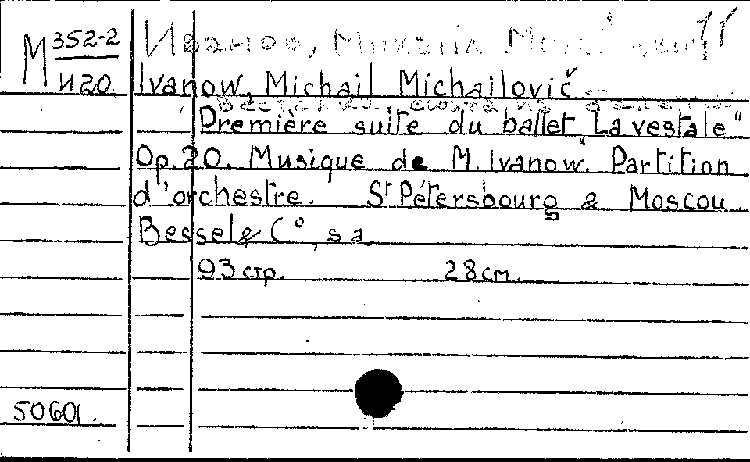 М 352-2
И20
Иванов, Михаил Михайлович 11
Ivanow, Michail Michailovič
Première suite du ballet „La vestale"
Op.20. Musique de M. Ivanow. Partition
d'orchestre. St Pétersbourg & Moscou
Bessel & C°, s.a.
93 стр. 28 см.
50601.